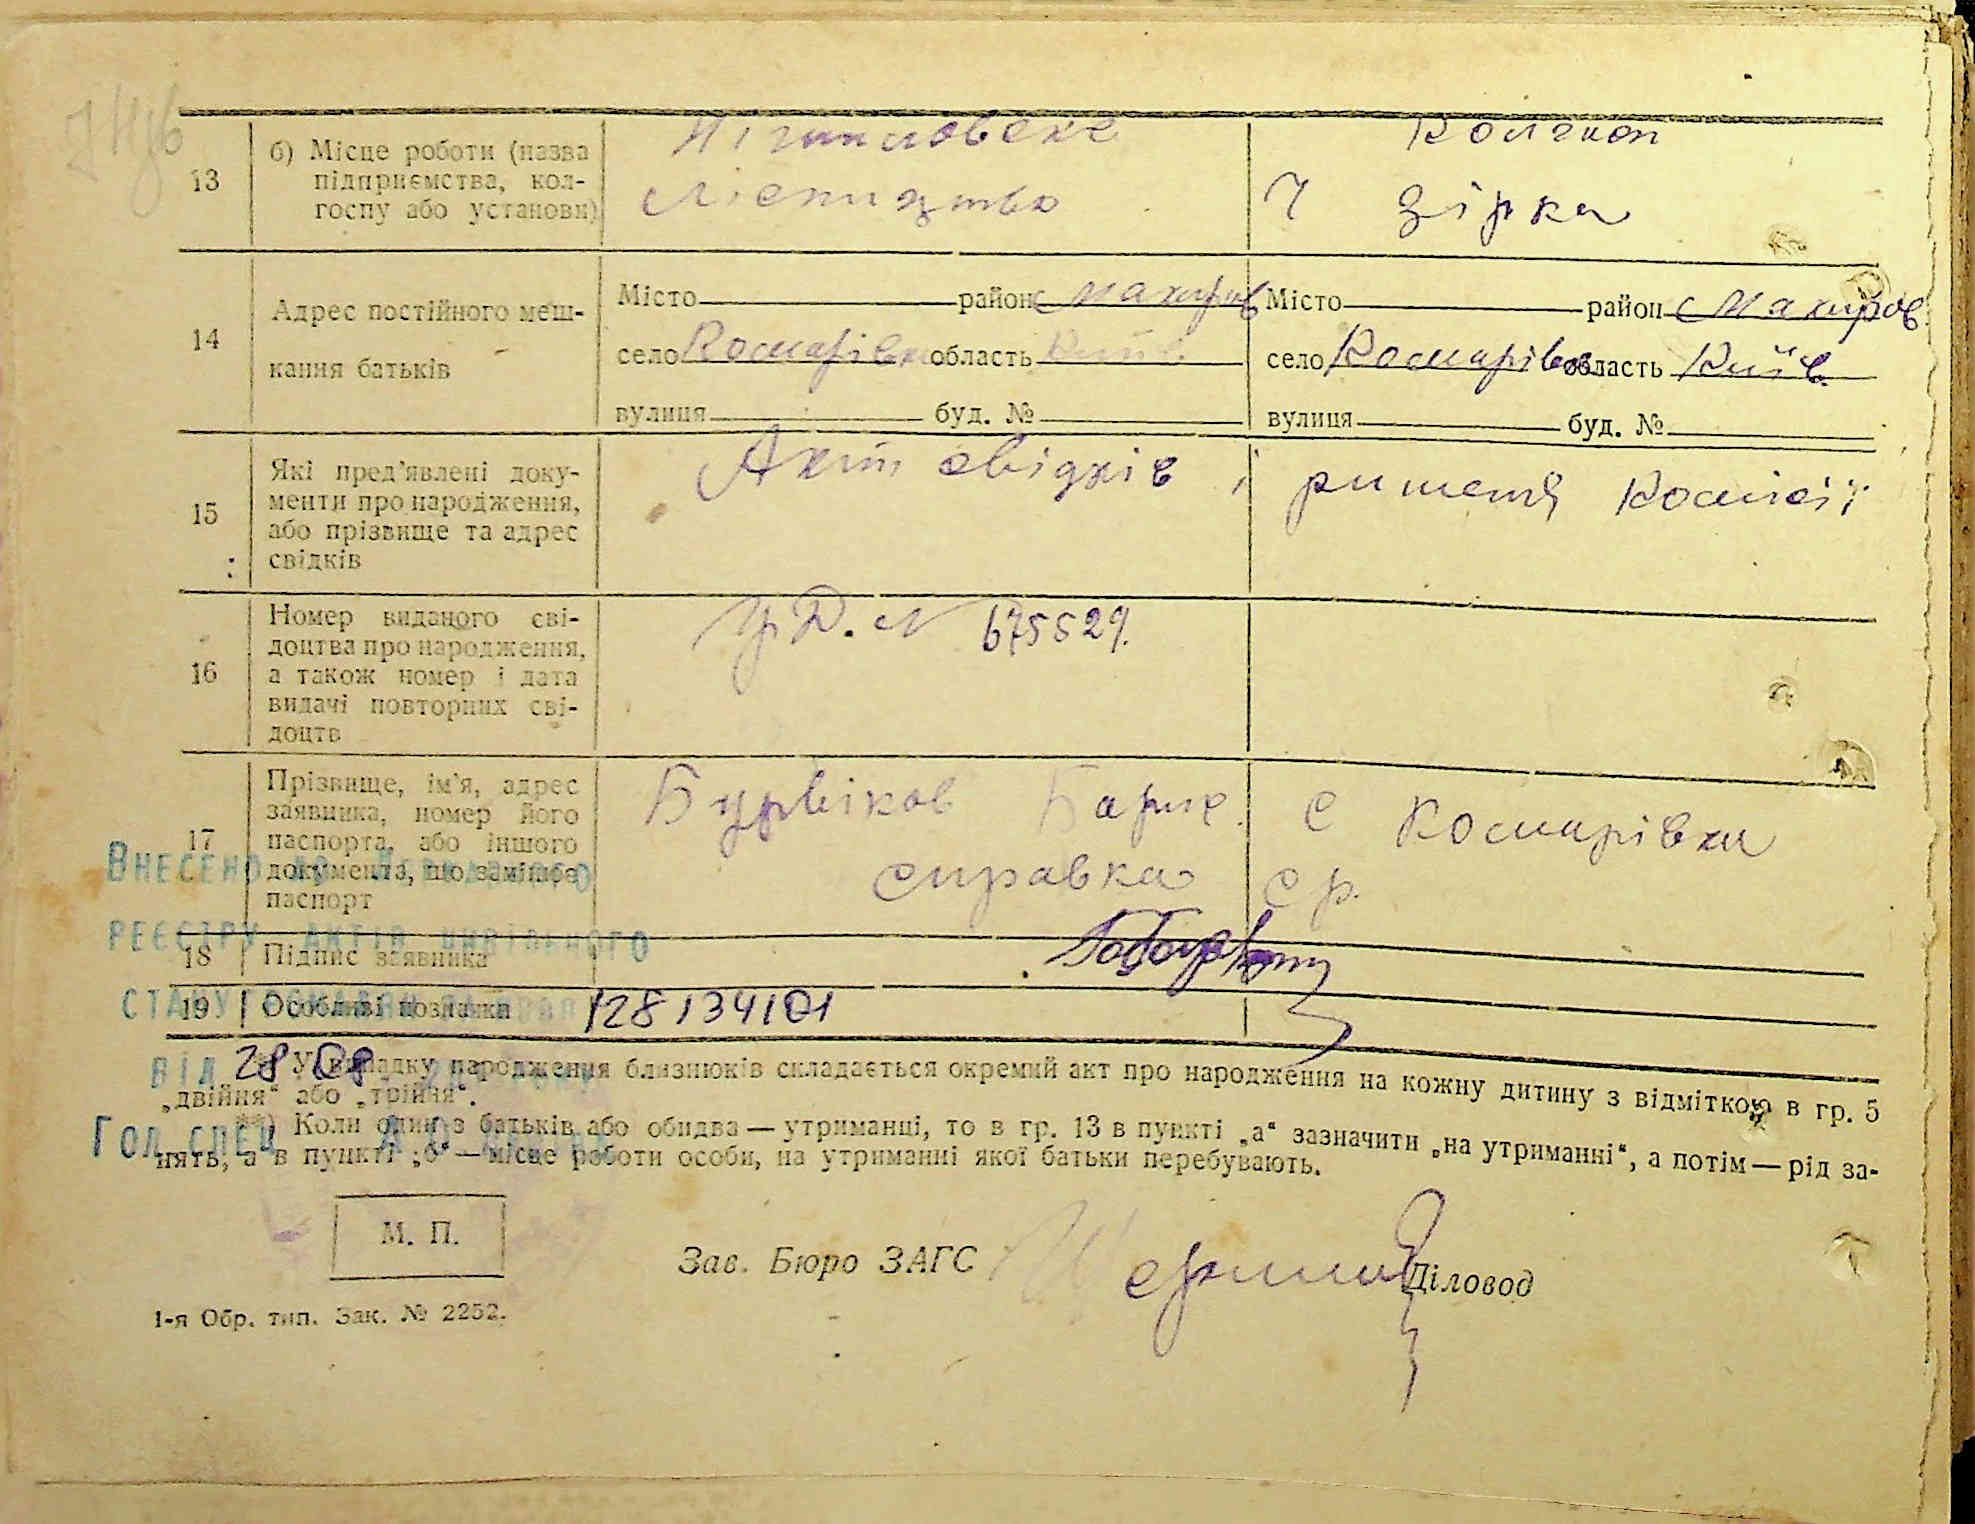 13
б) Місце роботи (назва
підприємства, кол-
госпу або установи)
лісництво
Колгосп
Ч Зірка
14
Адрес постійного меш-
кання батьків
Місто район Макарів
село Комарівка область Київ
вулиця буд. №
Місто район Макаров
село Комарівка область Київ
вулиця буд. №
15
Які пред'явлені доку-
менти про народження,
або прізвище та адрес
свідків
Акт свідків і ришеня комісії
16
Номер виданого сві-
доцтва про народження,
а також номер і дата
видачі повторних сві-
доцтв
№ 675529.
17
Прізвище, ім'я, адрес
заявника, номер його
паспорта, або іншого
документа, що заміняє
паспорт
с Комарівка
справка с р.
18
Підпис заявника
19
Особливі позначки
128134101
Внесено до Державного
реєстру актів цивільного
стану
від 28 08
Гол спец
*) У випадку народження близнюків складається окремий акт про народження на кожну дитину з відміткою в гр. 5
„двійня“ або „трійня“.
**) Коли один з батьків або обидва — утриманці, то в гр. 13 в пункті „а“ зазначити „на утриманні“, а потім — рід за-
нять, а в пункті „б“ — місце работи особи, на утриманні якої батьки перебувають.
М. П.
Зав. Бюро ЗАГС
Діловод
1-я Обр. тип. Зак. № 2252.